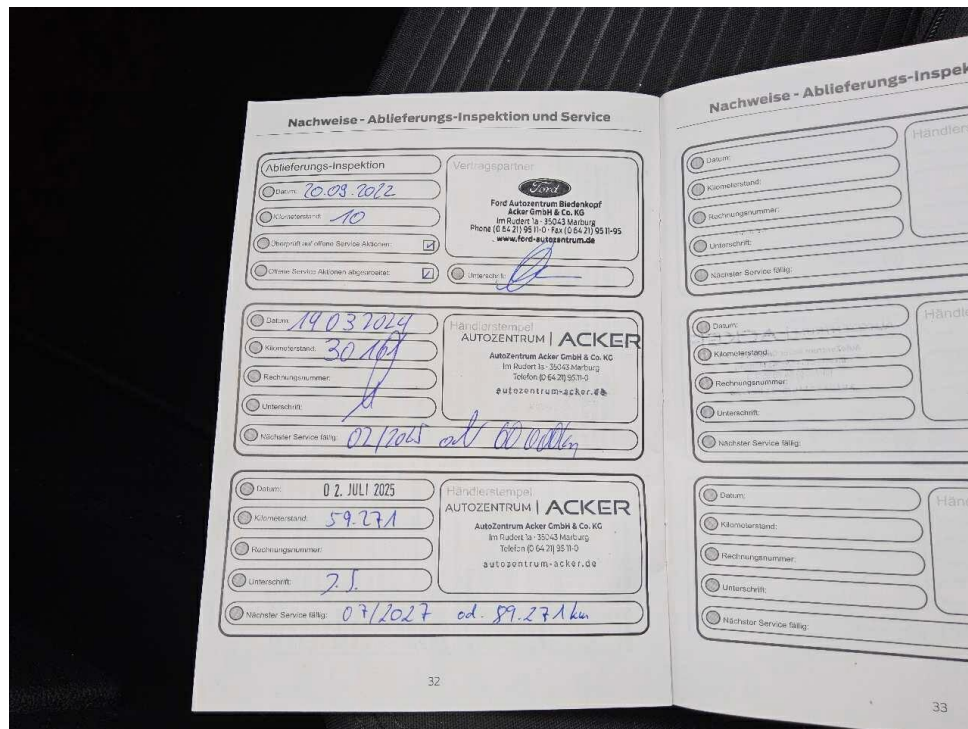 Nachweise - Ablieferungs-Inspektion und Service
Ablieferungs-Inspektion
Datum: 20.09.2022
Kilometerstand: 10
Überprüft auf offene Service Aktionen:
Offene Service Aktionen abgearbeitet:
Vertragspartner
Ford
Ford Autozentrum Biedenkopf
Acker GmbH & Co. KG
Im Rudert 1a - 35043 Marburg
Phone (0 64 21) 95 11-0 · Fax (0 64 21) 95 11-95
www.ford-autozentrum.de
Unterschrift:
Datum: 19 03 2024
Kilometerstand: 30 169
Rechnungsnummer:
Unterschrift:
Händlerstempel
AUTOZENTRUM | ACKER
AutoZentrum Acker GmbH & Co. KG
Im Rudert 1a - 35043 Marburg
Telefon (0 64 21) 95 11-0
autozentrum-acker.de
Nächster Service fällig: 02/2025 od 60 000km
Datum: 02. JULI 2025
Kilometerstand: 59.271
Rechnungsnummer:
Unterschrift: J.S.
Händlerstempel
AUTOZENTRUM | ACKER
AutoZentrum Acker GmbH & Co. KG
Im Rudert 1a - 35043 Marburg
Telefon (0 64 21) 95 11-0
autozentrum-acker.de
Nächster Service fällig: 07/2027 od. 89.271 km
32
Nachweise - Ablieferungs-Inspek
Datum:
Kilometerstand:
Rechnungsnummer:
Unterschrift:
Nächster Service fällig:
Händlers
Datum:
Kilometerstand:
Rechnungsnummer:
Unterschrift:
Nächster Service fällig:
Händle
Datum:
Kilometerstand:
Rechnungsnummer:
Unterschrift:
Nächster Service fällig:
Händ
33